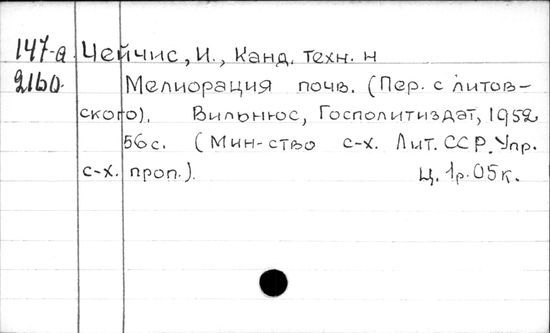 147-а Чейчис, И., Канд. техн. н
2160 Мелиорация почв. (Пер. с литов-
ского). Вильнюс, Госполитиздат, 1952
56с. (Мин-ство с-х. Лит. ССР. Упр.
с-х. проп.). Ц. 1р. 05к.